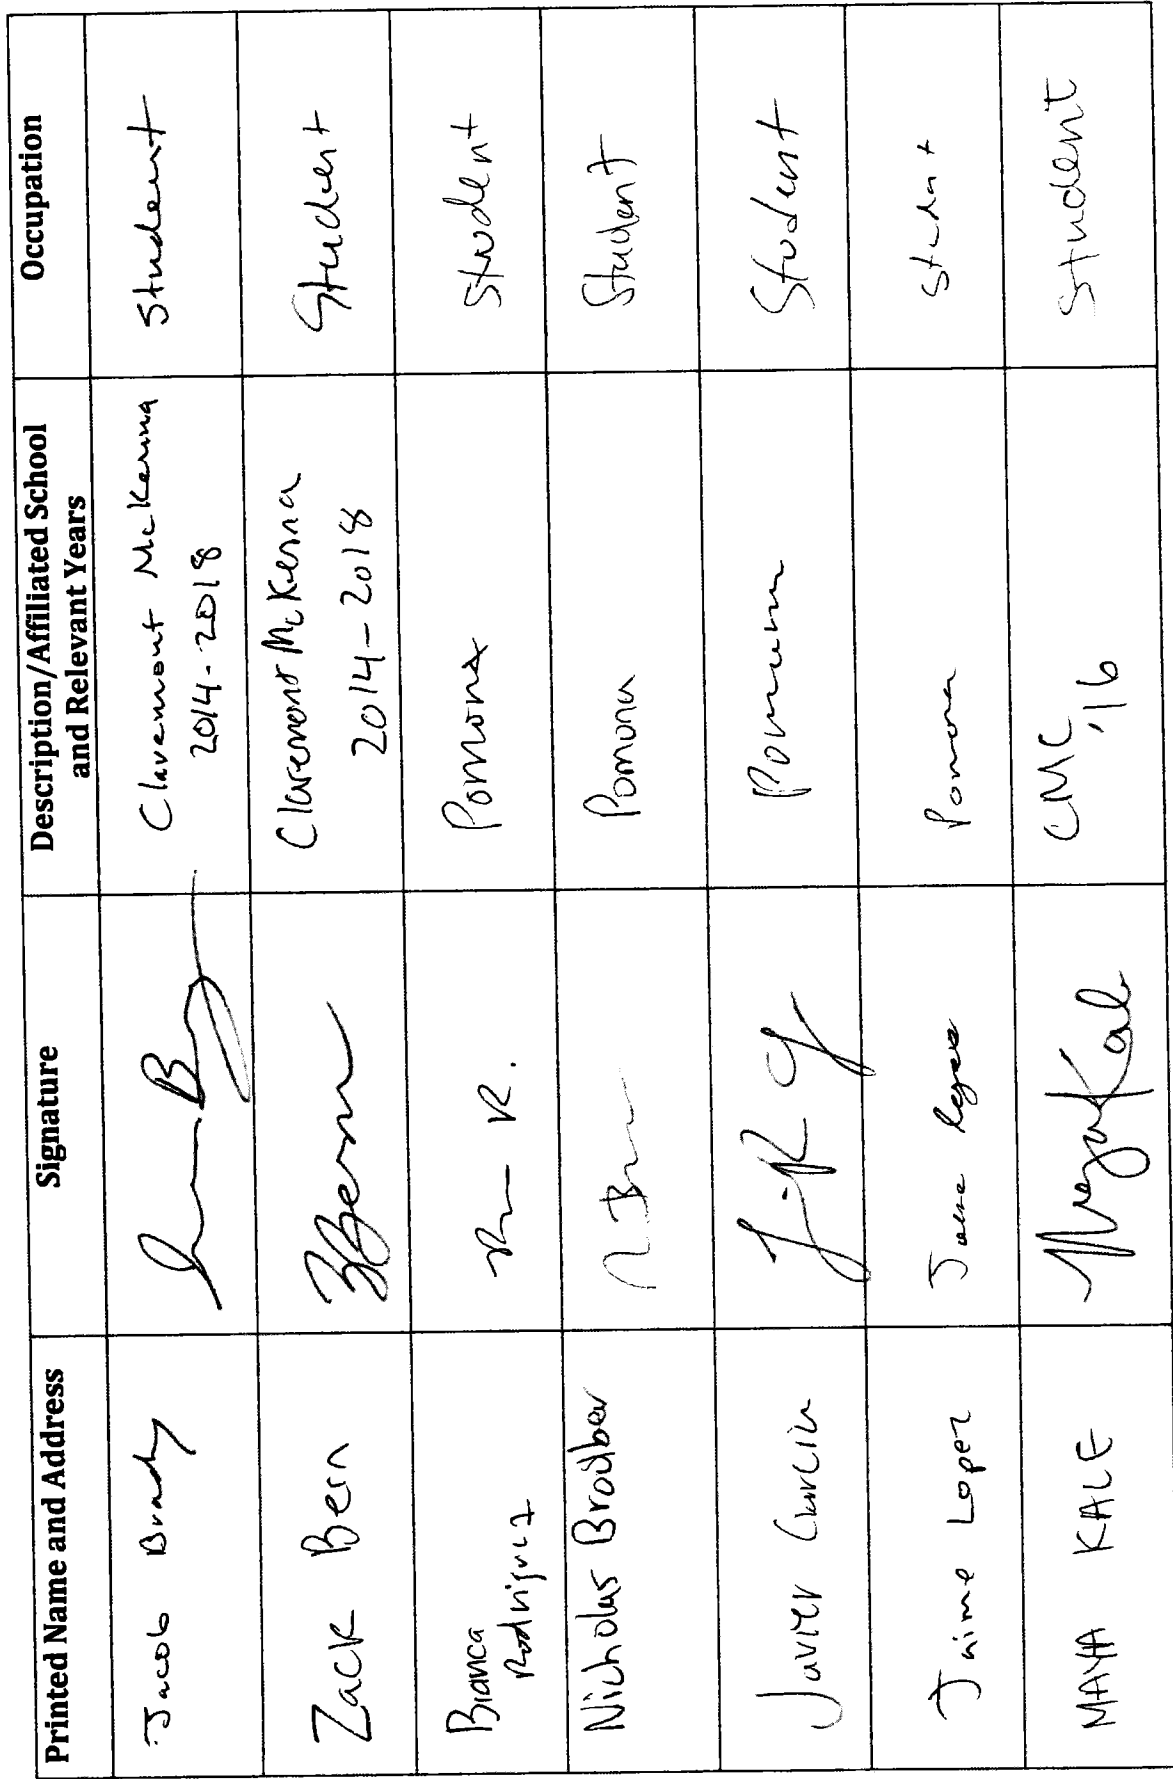 Printed Name and Address
Signature
Description/Affiliated School
and Relevant Years
Occupation
Jacob Brady
Claremont McKenna
2014-2018
Student
Zack Bern
ZBern
Claremont McKenna
2014-2018
Student
Bianca
Rodriguez
R.
Pomona
Student
Nicholas
Pomona
Student
Javier Garcia
Pomona
Student
Jaime Lopez
Pomona
Student
MAYA KALE
Maya Kale
CMC
'16
Student